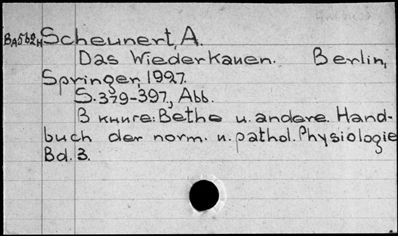 BA562H Scheunert, A.
Das Wiederkauen. Berlin,
Springer, 1927.
S. 379-397, Abb.
В книге: Bethe u. andere. Hand-
buch der norm. u. pathol. Physiologie
Bd. 3.